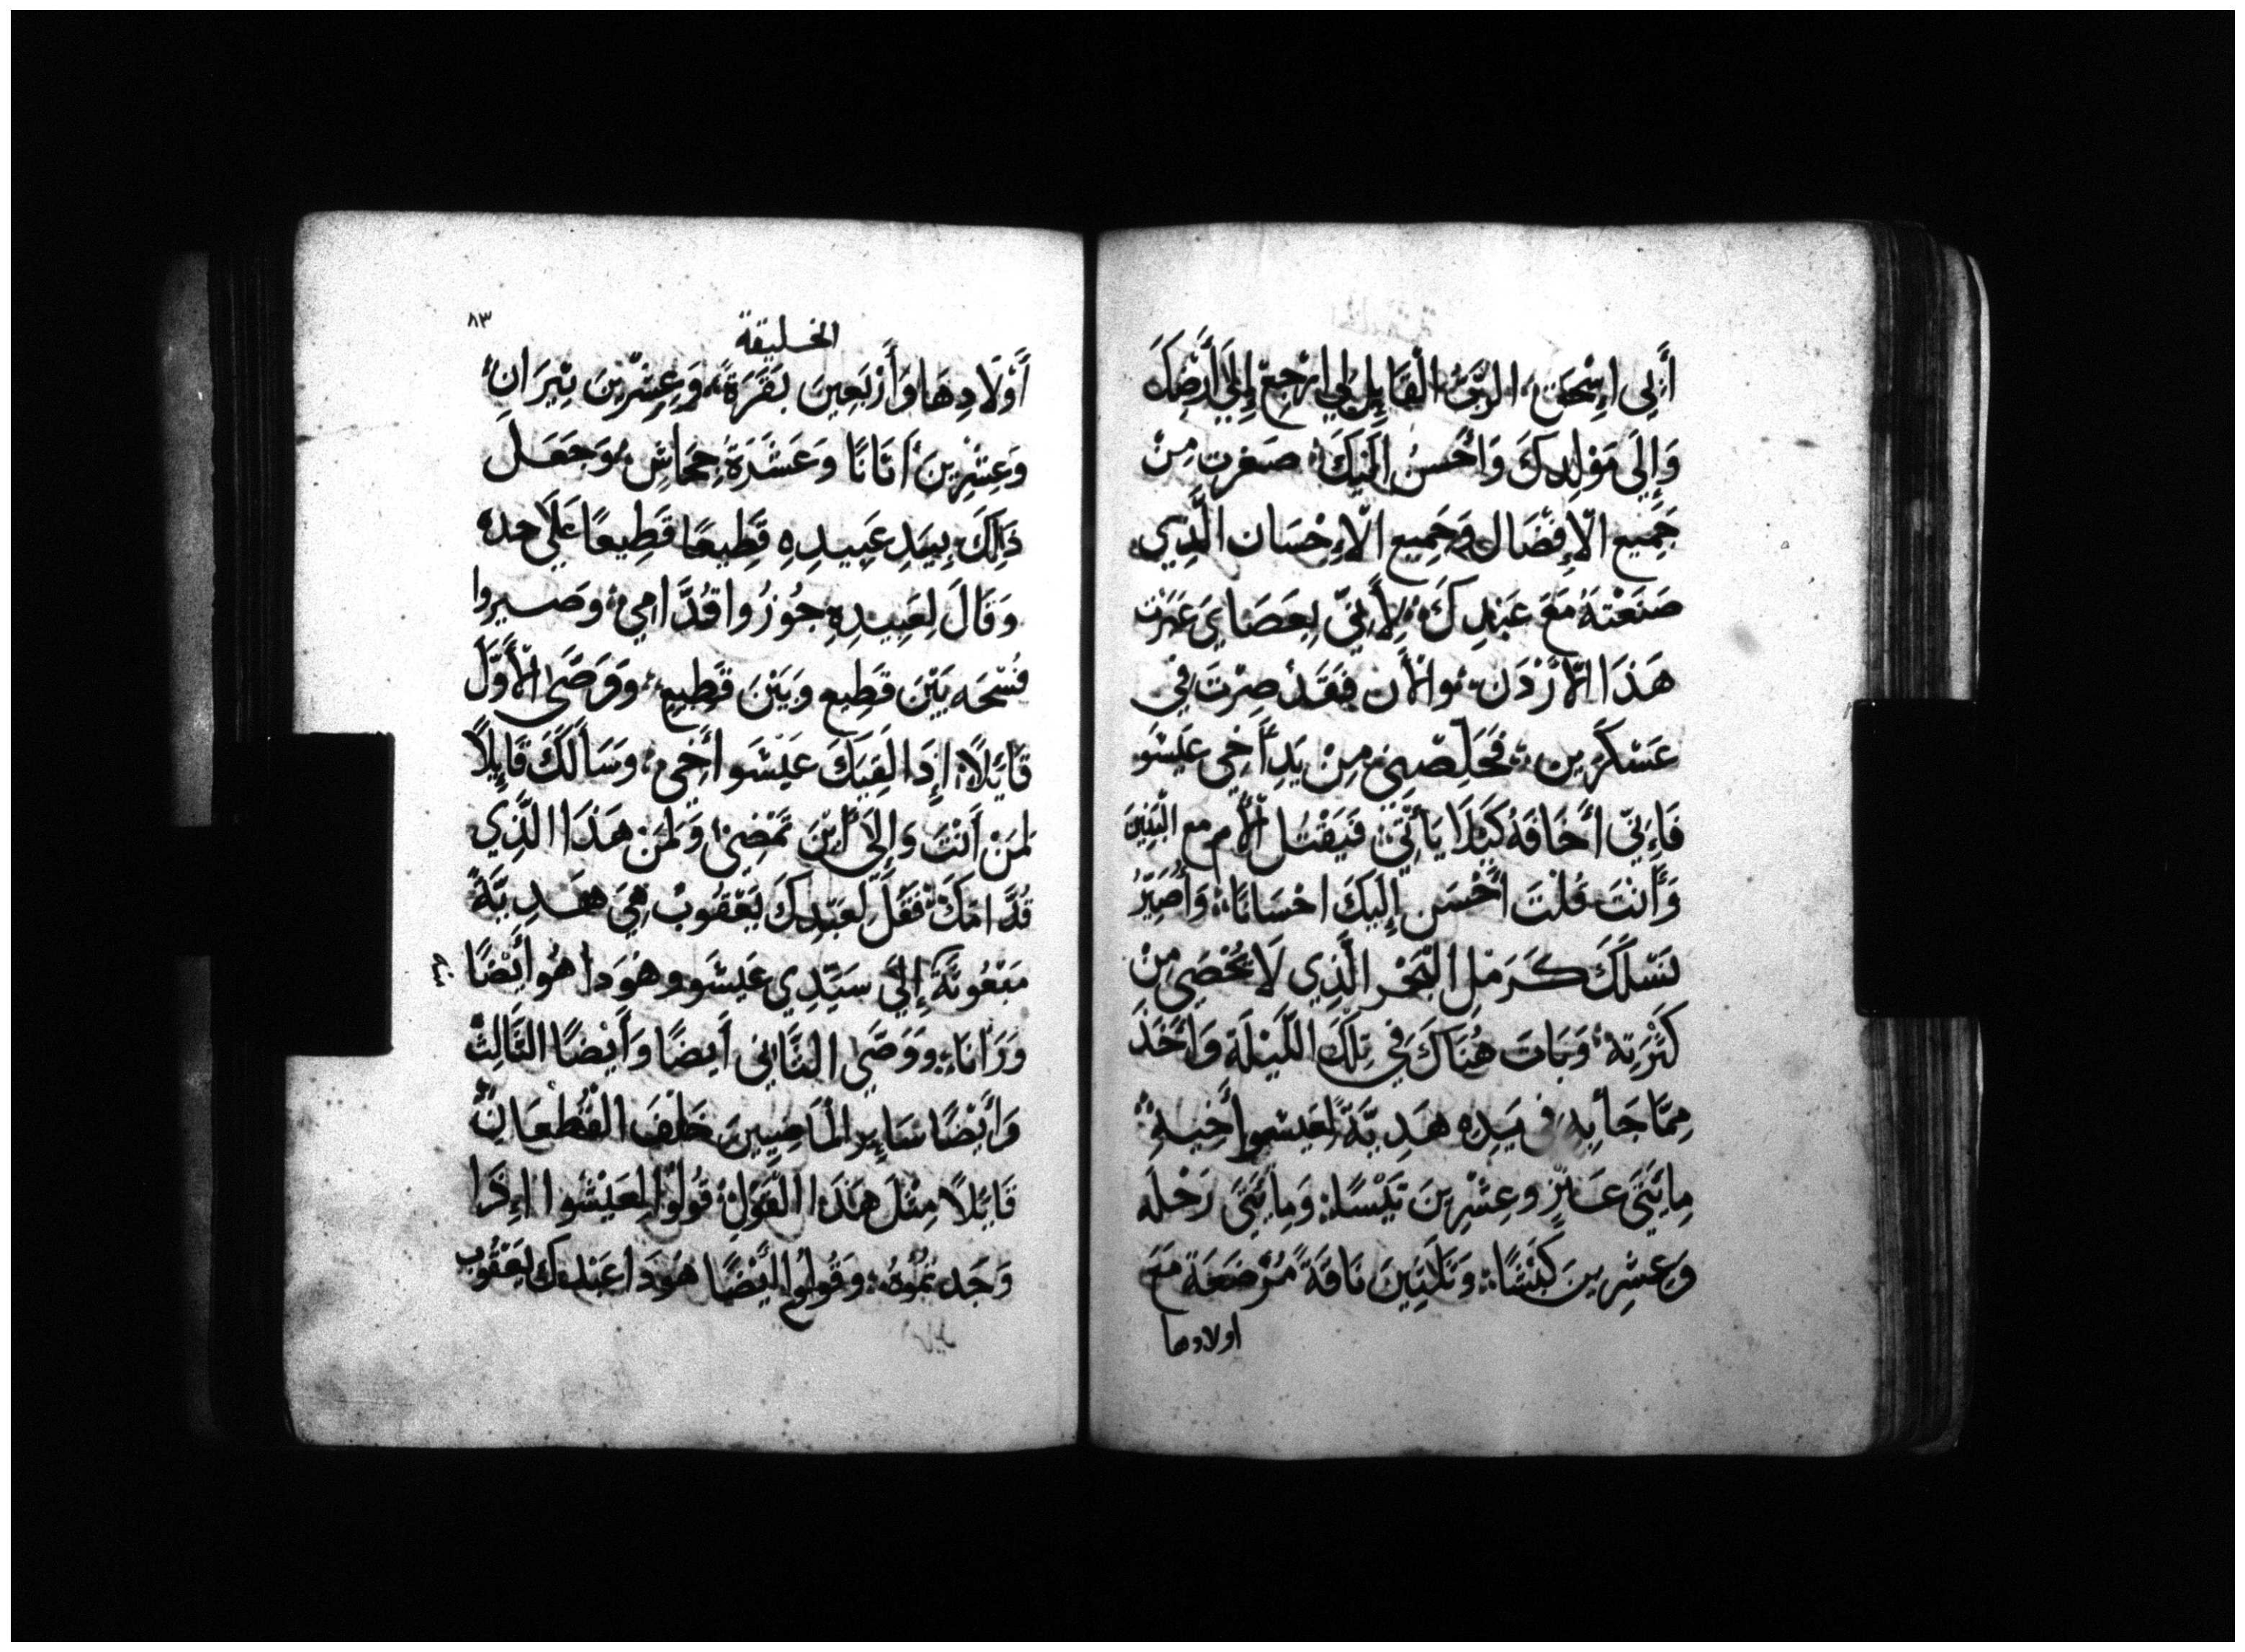 أَبِي إِسْحَقَ، الرَّبُّ الْقَايِلُ لِي ارْجِعْ إِلَى أَرْضِكَ
وَإِلَى مَوْلِدِكَ وَأُحْسِنُ إِلَيْكَ، صَغرت مِنْ
جَمِيعِ الْإِفْضَالِ وَجَمِيعِ الْإِحْسَانِ الَّذِي
صَنَعْتَهُ مَعَ عَبْدِكَ، لِأَنِّي بِعَصَايَ عَبَرْتُ
هَذَا الْأُرْدُنَ، وَالْأَن فَقَدْ صِرْتُ فِي
عَسْكَرَيْنِ، فَخَلِّصْنِي مِنْ يَدِ أَخِي عَيْسُو
فَإِنِّي أَخَافَهُ كَيْلَا يَأْتِيَ فَيَقْتُل الْأُم مع الْبَنِينَ
وَأَنْتَ قُلْتَ أُحْسِن إِلَيْكَ احْسَانًا، وَأُصَيِّرُ
نَسْلَكَ كَرَمْلِ الْبَحْرِ الَّذِي لَا يُحْصَى مِنْ
كَثْرَتِهِ، وَبَاتَ هُنَاكَ فِي تِلْكَ اللَّيْلَةِ وَأَخَذَ
مِمَّا جَا بِهِ فِي يَدِهِ هَدِيَّةً لِعَيْسُوا أَخِيهِ
مِايَتَي عَنْزٍ وَعِشْرِينَ تَيْسًا، وَمِايَتَي رَخْلَه
وَعِشْرِينَ كَبْشًا، وَثَلَثِينَ نَاقَةً مُرْضَعَةً مَعَ
اولادها
٨٣
الخليقة
أَوْلَادِهَا وَأَرْبَعِينَ بَقَرَةً، وَعِشْرِينَ ثِيرَانٌ
وَعِشْرِينَ أَتَانًا وَعَشَرَةَ جِحَاشٍ، وَجَعَلَ
ذَلِكَ بِيَدِ عَبِيدِهِ قَطِيعًا قَطِيعًا عَلَى حده
وَقَالَ لِعَبِيدِهِ جُوزُوا قُدَّامِي، وَصَيروا
فُسْحَه بَيْنَ قَطِيعٍ وَبَيْنَ قَطِيعٍ، وَوَصَّى الْأَوَّلَ
قَايِلًا، إِذَا لَقِيَكَ عَيْسُو أَخِي، وَسَأَلَكَ قَايِلًا
لِمَنْ أَنْتَ وَإِلَى أَيْنَ تَمْضِي وَلِمَنْ هَذَا الَّذِي
قُدَّامَكَ، فَقُلْ لِعَبْدِكَ يَعْقُوبَ هِيَ هَدِيَّةٌ
مَبْعُوثَةٌ إِلَى سَيِّدِي عَيْسُو وهُوَدا هُو أَيْضًا
وَرَانَا، وَوَصَّى الثَّانِي أَيضًا وَأَيْضًا الثَّالِثَ
وَأَيْضًا سَايِر الْمَاضِيِينَ خَلْفَ الْقُطْعَانِ
قَايِلًا مِثْلَ هَذَا الْقَوْلِ، قُولُوْا لِعَيْسُوا إِذَا
وَجَدتمُوهُ، وَقُولُوا أَيْضًا هُوَدَا عَبْدك يَعْقُوب